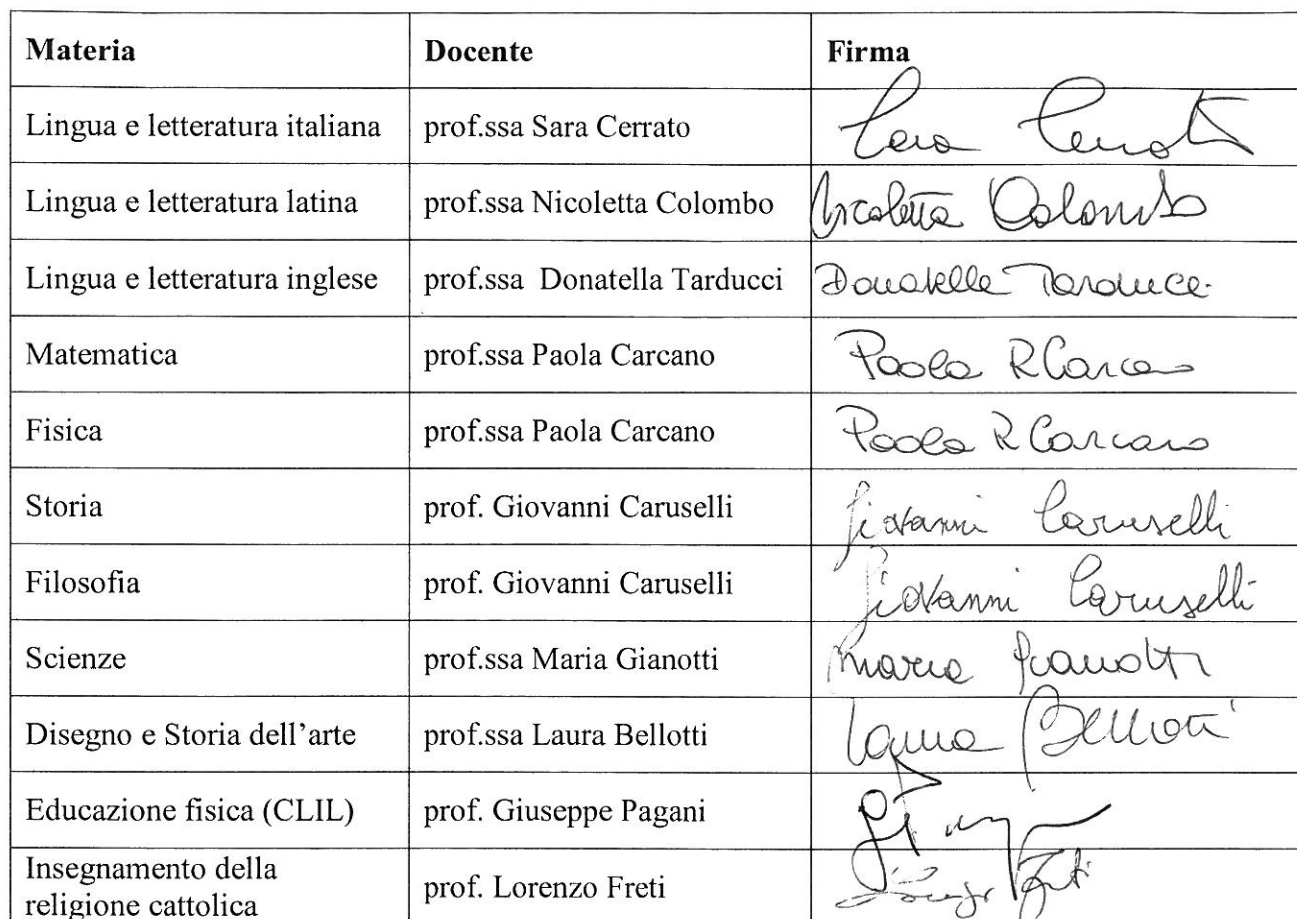 Materia Docente Firma
Lingua e letteratura italiana prof.ssa Sara Cerrato Sara Cerrato
Lingua e letteratura latina prof.ssa Nicoletta Colombo Nicoletta Colombo
Lingua e letteratura inglese prof.ssa Donatella Tarducci Donatella Tarducci
Matematica prof.ssa Paola Carcano Paola R Carcano
Fisica prof.ssa Paola Carcano Paola R Carcano
Storia prof. Giovanni Caruselli Giovanni Caruselli
Filosofia prof. Giovanni Caruselli Giovanni Caruselli
Scienze prof.ssa Maria Gianotti Maria Gianotti
Disegno e Storia dell'arte prof.ssa Laura Bellotti Laura Bellotti
Educazione fisica (CLIL) prof. Giuseppe Pagani
Insegnamento della
religione cattolica prof. Lorenzo Freti